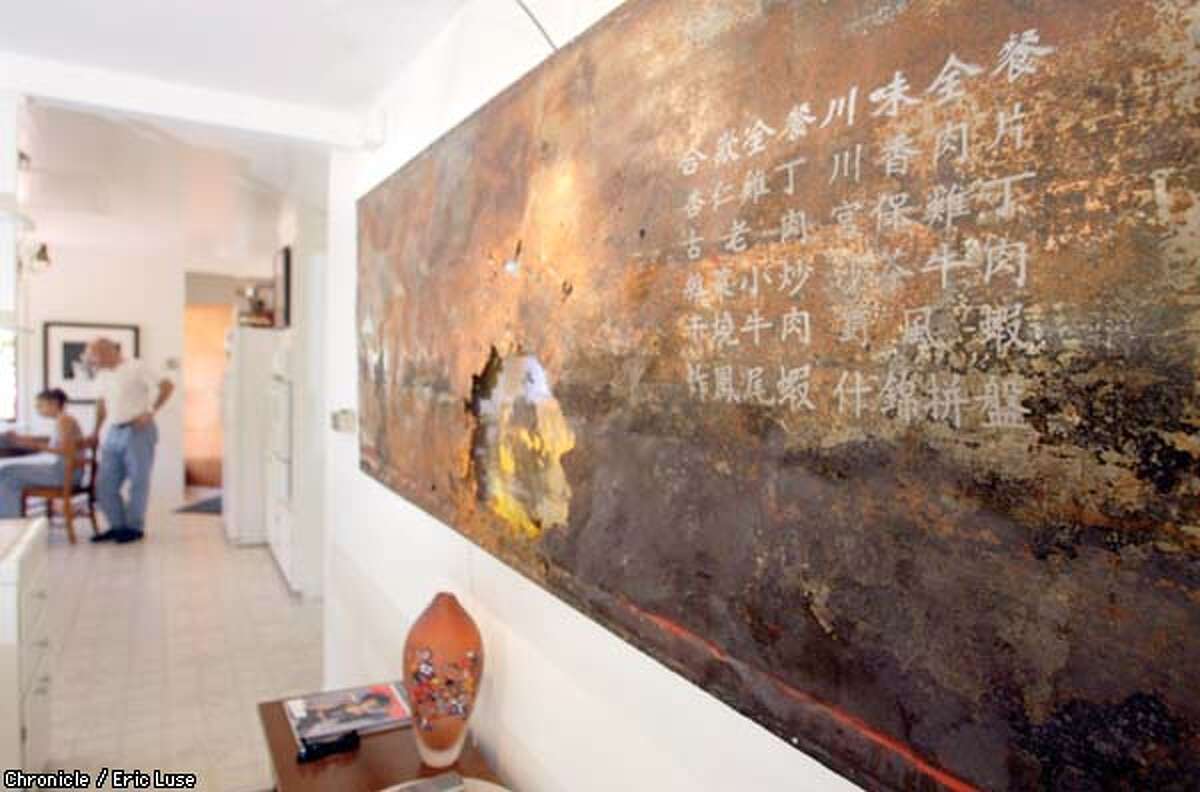 合歡全餐 川味全餐
杏仁雞丁 川香肉片
古老肉 宮保雞丁
菜小炒 沙茶牛肉
干燒牛肉 風蝦
炸鳳尾蝦 什錦拼盤
Chronicle / Eric Luse